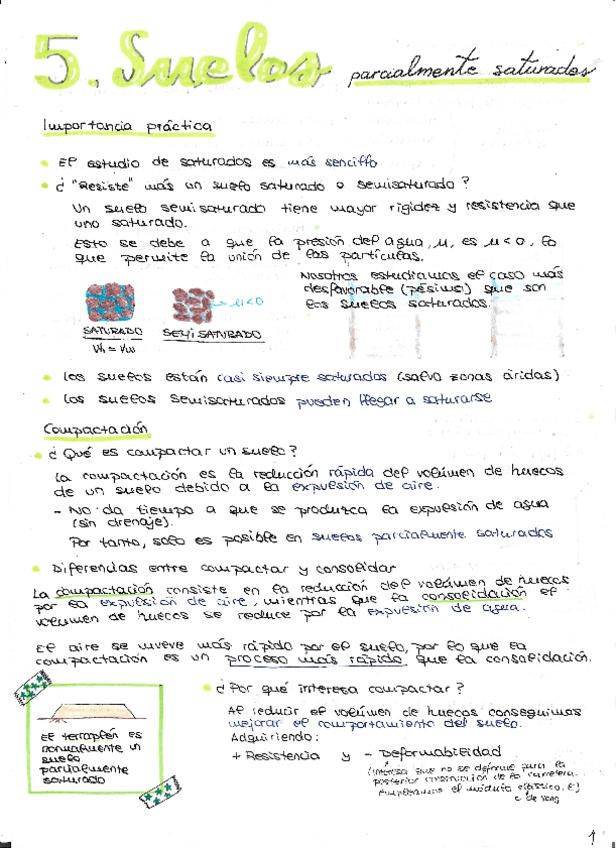 5. Suelos parcialmente saturados
Importancia práctica
• El estudio de saturados es más sencillo
• ¿"Resiste" más un suelo saturado o semisaturado?
Un suelo semisaturado tiene mayor rigidez y resistencia que
uno saturado.
Esto se debe a que la presión del agua, μ, es μ<0, lo
que permite la unión de las partículas.
Nosotros estudiamos el caso más
desfavorable (pésimo) que son
los suelos saturados.
μ<0
SATURADO
SEMISATURADO
• Los suelos están casi siempre saturados (salvo zonas áridas)
• Los suelos semisaturados pueden llegar a saturarse
Compactación
• ¿Qué es compactar un suelo?
La compactación es la reducción rápida del volúmen de huecos
de un suelo debido a la expulsión de aire.
- NO da tiempo a que se produzca la expulsión de agua
(sin drenaje).
Por tanto, solo es posible en suelos parcialmente saturados
• Diferencias entre compactar y consolidar
La compactación consiste en la reducción del volúmen de huecos
por la expulsión de aire, mientras que la consolidación el
volúmen de huecos se reduce por la expulsión de agua.
El aire se mueve más rápido por el suelo, por lo que la
compactación es un proceso más rápido que la consolidación.
El terraplén es
normalmente un
suelo
parcialmente
saturado
• ¿Por qué interesa compactar?
Al reducir el volúmen de huecos conseguimos
mejorar el comportamiento del suelo.
Adquiriendo:
+ Resistencia y - Deformabilidad
(interesa que no se deforme para la
posterior construcción de la carretera.
el módulo elástico, E)
1